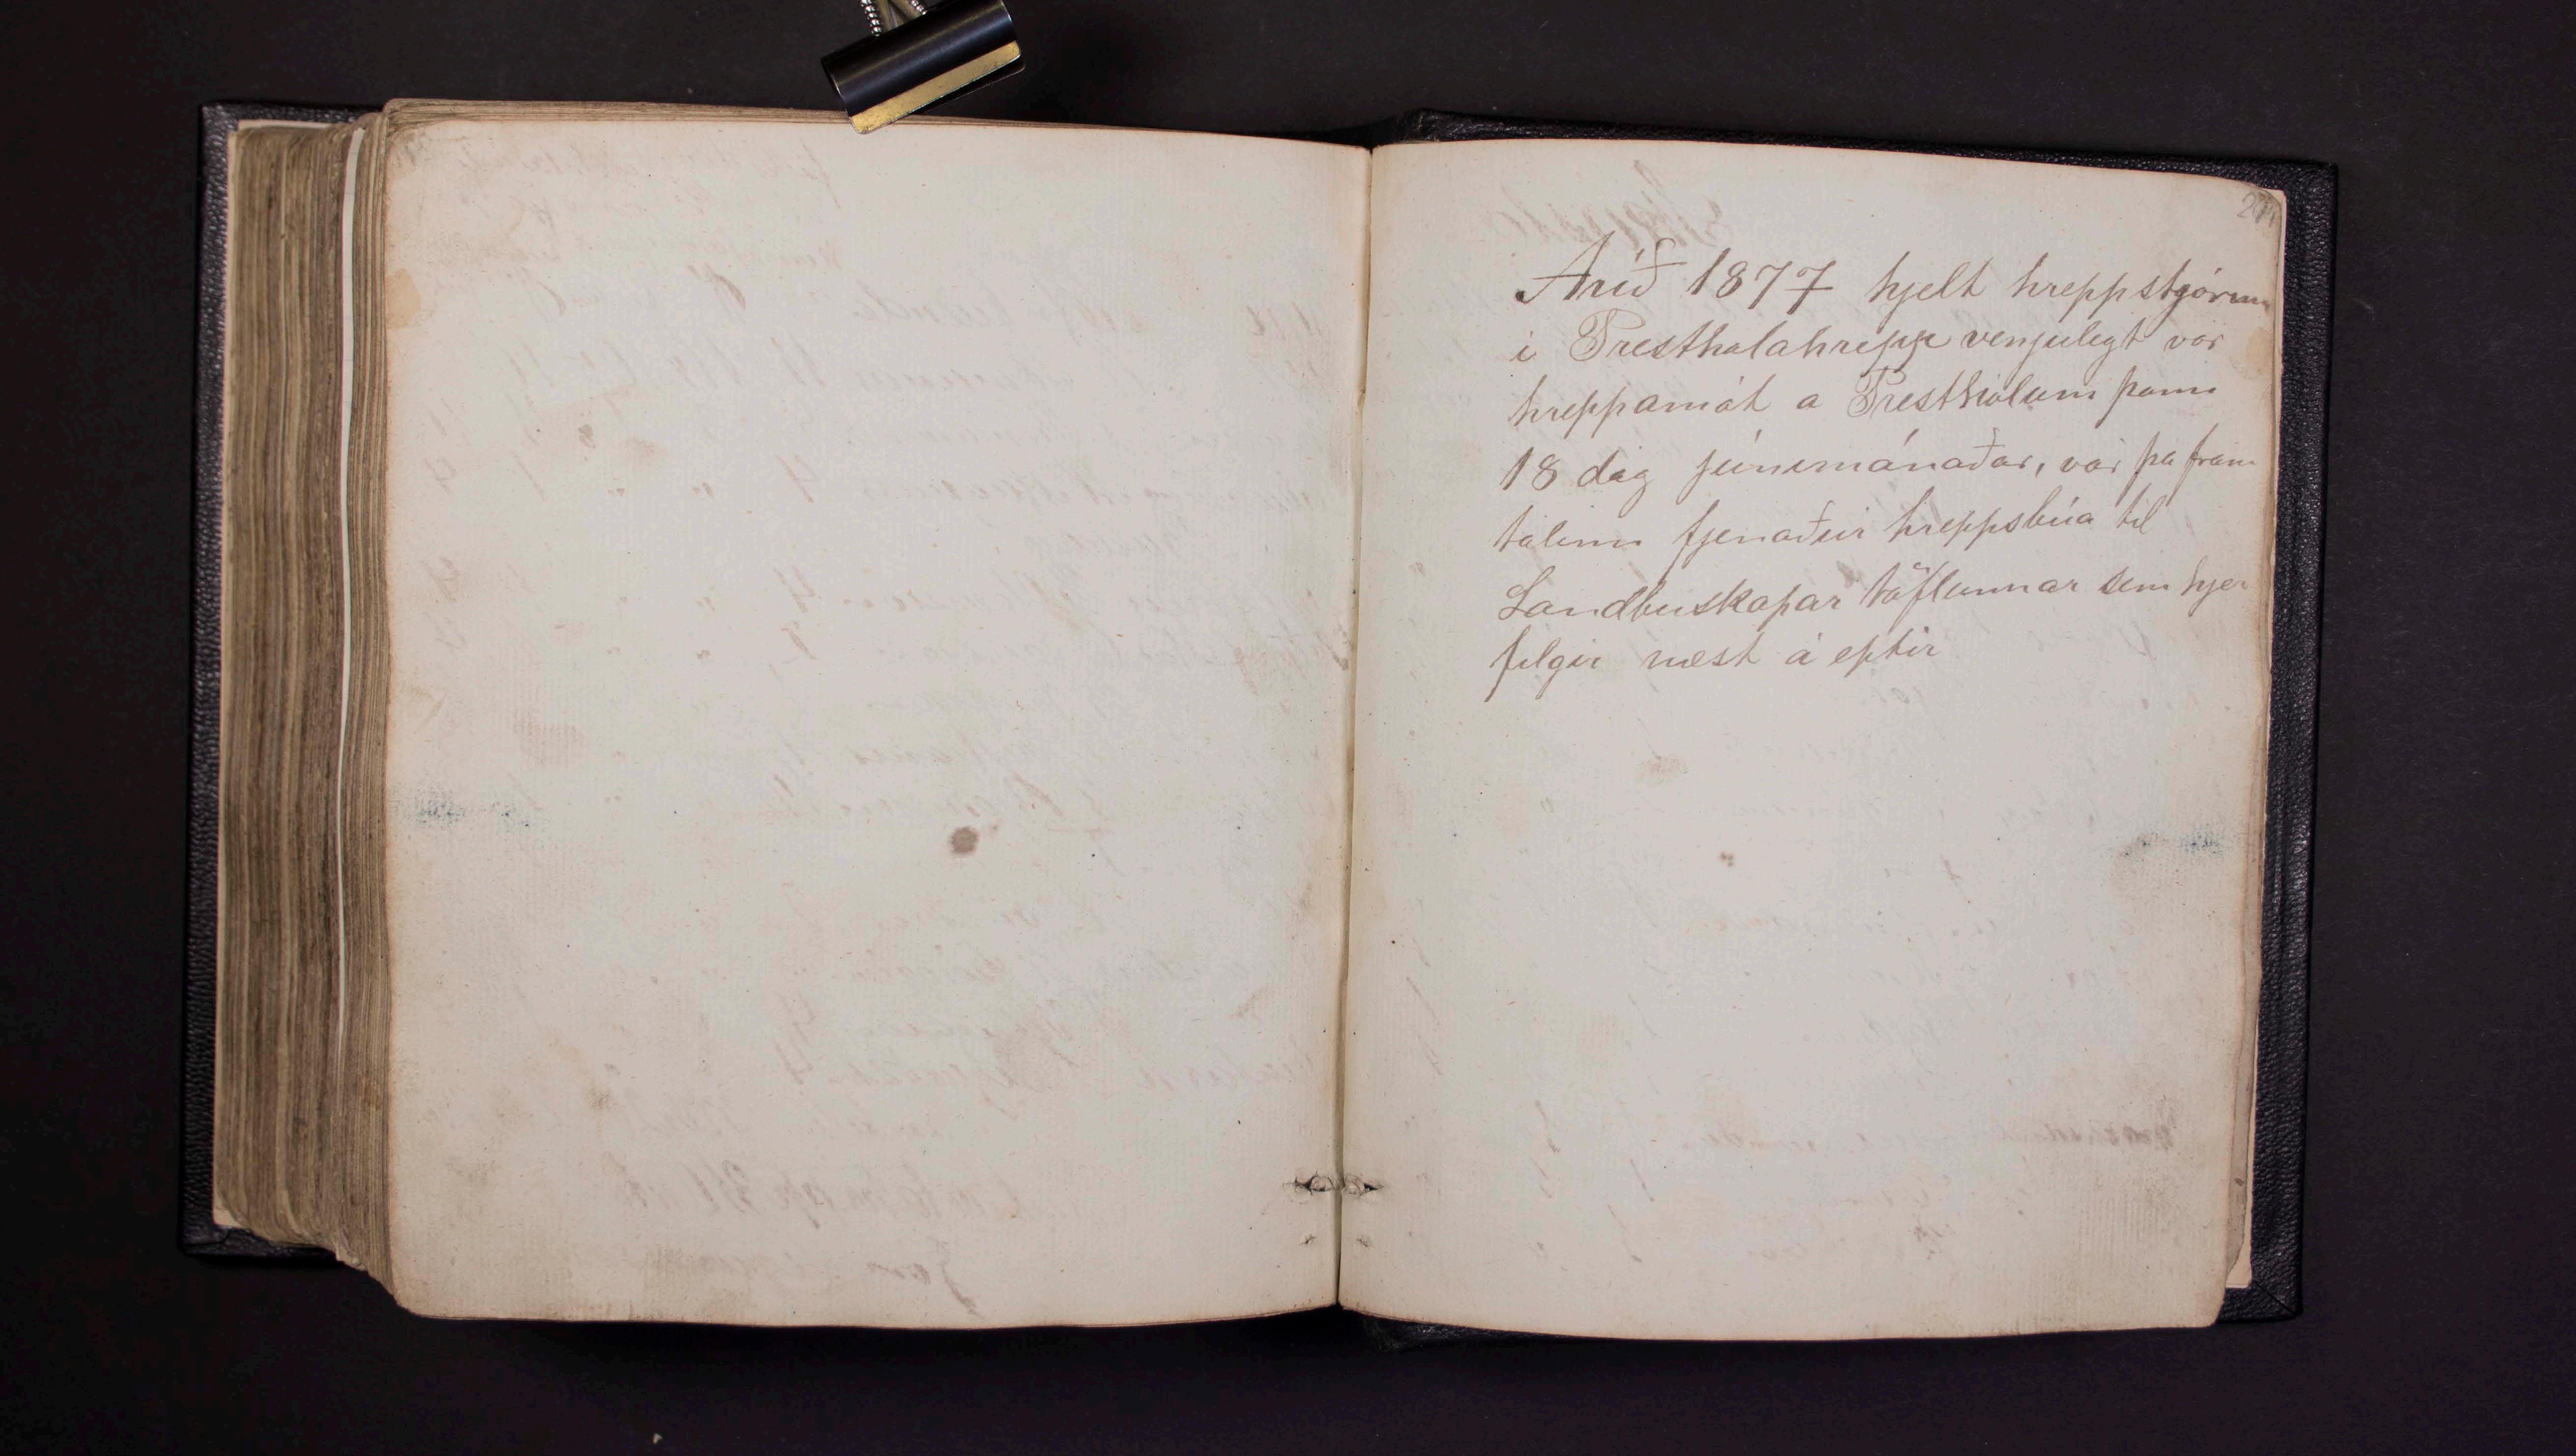 Arið 1877 hjelt hreppstjórinn
i Presthólahrepp venjulegt vor
hreppamót a Presthólum þann
18 dag júnimánaðar, var þa fram
talinn fjenaður hreppsbúa til
Landbuskapar töflunnar sem hjer
filgir næst á eptir